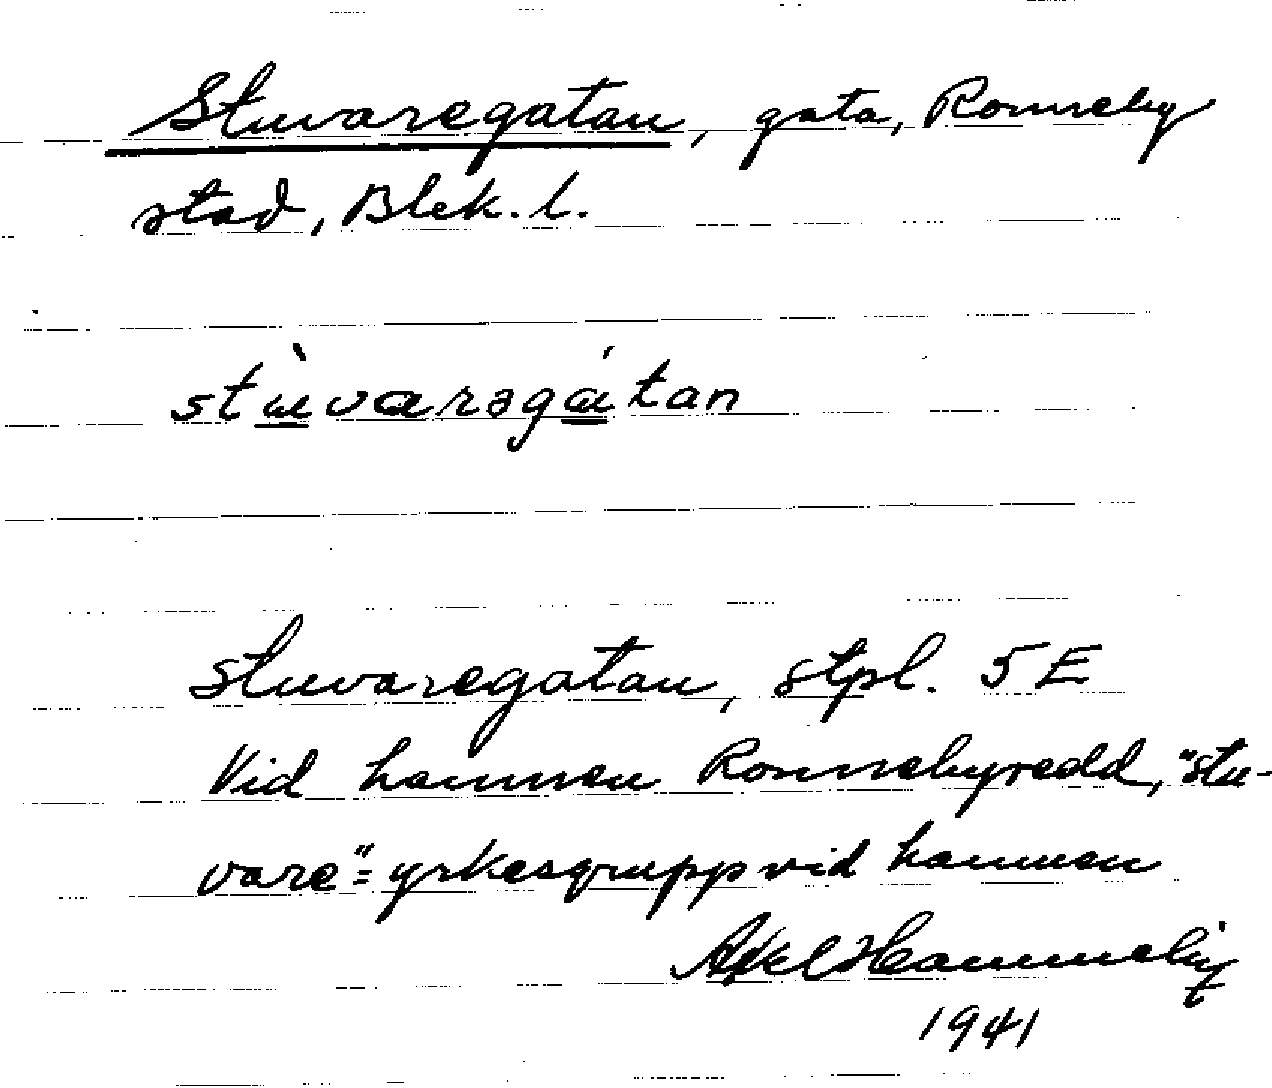 Stuvaregatan, gata, Ronneby
stad, Blek. l.
stùvarəgátan
Stuvaregatan, stpl. 5 E
Vid hamnen Ronnebyredd, "stu-
vare" = yrkesgrupp vid hamnen
Axel
1941